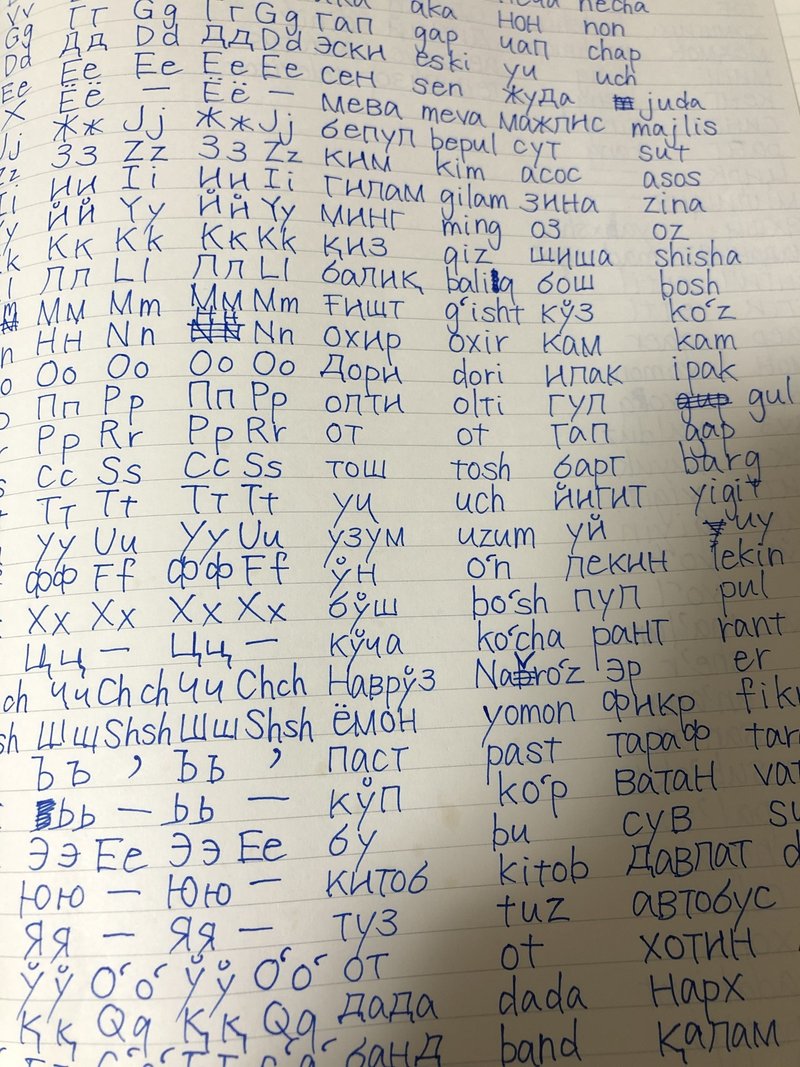 Vv Гг Gg Гг Gg ака aka неча necha
Gg Дд Dd Дд Dd гап gap нон non
Dd Ее Ee Ее Ee эски eski чап chap
Ee Ёё — Ёё — сен sen уч uch
Жж Jj Жж Jj мева meva жуда juda
Jj Зз Zz Зз Zz бепул bepul мажлис majlis
Zz Ии Ii Ии Ii ким kim сут sut
Ii Йй Yy Йй Yy гилам gilam асос asos
Yy Кк Kk Кк Kk минг ming зина zina
k Лл Ll Лл Ll қиз qiz оз oz
l Мм Mm Мм Mm балиқ baliq шиша shisha
m Нн Nn Нн Nn ғишт gʻisht бош bosh
n Оо Oo Оо Oo охир oxir кўз koʻz
o Пп Pp Пп Pp Дори dori кам kam
Рр Rr Рр Rr олти olti ипак ipak
r Сс Ss Сс Ss от ot гул gul
s Тт Tt Тт Tt тош tosh гап gap
Уу Uu Уу Uu уч uch барг barg
Фф Ff Фф Ff узум uzum йигит yigit
Хх Xx Хх Xx ўн oʻn уй uy
Цц — Цц — бўш boʻsh лекин lekin
ch Чч Chch Чч Chch кўча koʻcha пул pul
sh Шш Shsh Шш Shsh Наврўз Navroʻz рант rant
Ъъ ʼ Ъъ ʼ ёмон yomon эр er
ьь — ьь — паст past фикр fikr
Ээ Ee Ээ Ee кўп koʻp тараф
Юю — Юю — бу bu ватан
Яя — Яя — китоб kitob сув
Ўў Oʻoʻ Ўў Oʻoʻ туз tuz давлат
Ққ Qq Ққ Qq от ot автобус
дада dada хотин
банд band нарх
қалам